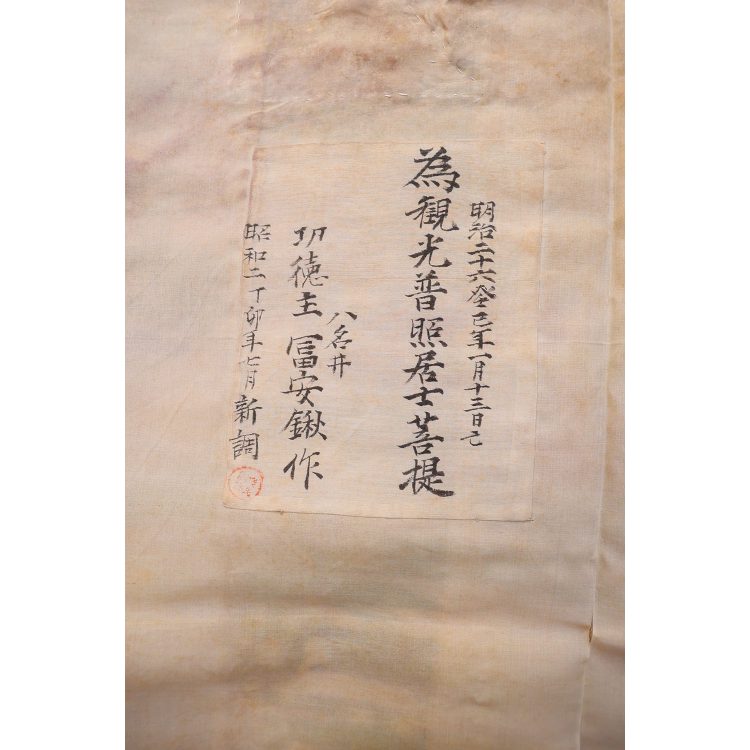 明治二十六癸巳年一月十三日亡
為觀光普照居士菩提
八名井
功徳主冨安鍬作
昭和二丁卯年七月新調